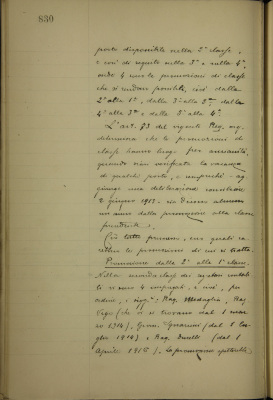 830
posto disponibile nella 2ª classe,
e così di seguito nella 3ª e nella 4ª,
onde 4 sono le promozioni di classe
che si rendono possibili, cioè dalla
2ª alla 1ª, dalla 3ª alla 2ª, dalla
4ª alla 3ª, e dalla 5ª alla 4ª.
L'art. 73 del vigente Reg.
determina che le promozioni di
classe hanno luogo per anzianità,
quando viene verificata la vacanza
di qualche posto, e purchè - ag-
giunge una deliberazione consiliare
2 giugno 1913 - sia decorso almeno
un anno dalla promozione alla classe
precedente.
Ciò tutto premesso, ecco quali
le promozioni di cui si tratta.
Promozione dalla 2ª alla 1ª classe.
Nella seconda classe dei
vi sono 4 impiegati, e cioè, per
ordine, i sigg.ri: Rag. Medaglia, Rag.
(che vi si trovano dal 1 marzo
1914), Geom. (dal 1 lu-
glio 1914) e Rag. (dal 1
Aprile 1915). La promozione spetterebbe,